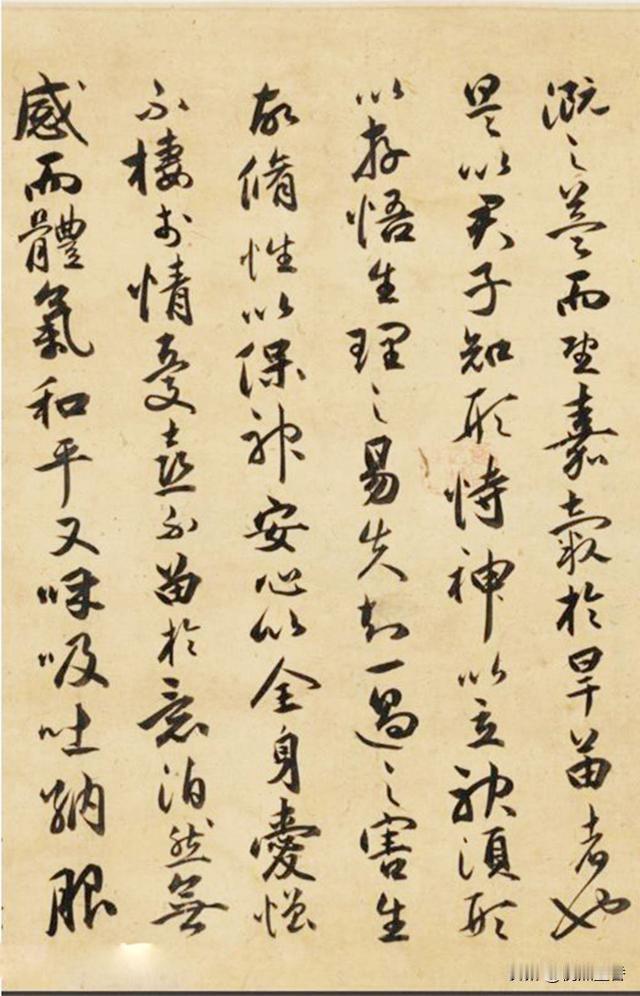 溉之益而望嘉穀於旱苗者也
是以君子知形恃神以立神須形
以存悟生理之易失知一過之害生
故脩性以保神安心以全身愛憎
不棲於情憂喜不留於意泊然無
感而體氣和平又呼吸吐納服